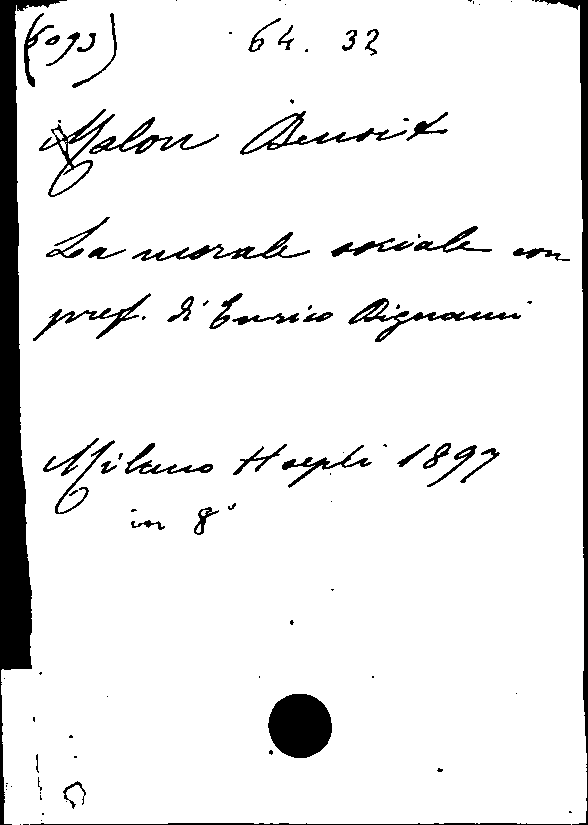 (6093)
64. 32
Malon Benoit
La morale sociale con
pref. di Enrico Bignami
Milano Hoepli 1897
in 8°